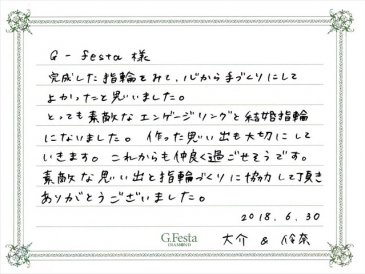 G - festa 様
完成した指輪をみて、心から手づくりにして
よかったと思いました。
とっても素敵なエンゲージリングと結婚指輪
になりました。作った思い出も大切にして
いきます。これからも仲良く過ごせそうです。
素敵な思い出と指輪づくりに協力して頂き
ありがとうございました。
2018.6.30
G.Festa
DIAMOND
大介 & 伶奈